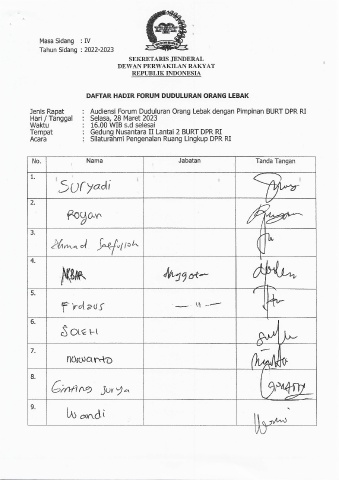 Masa Sidang : IV
Tahun Sidang : 2022-2023
SEKRETARIS JENDERAL
DEWAN PERWAKILAN RAKYAT
REPUBLIK INDONESIA
DAFTAR HADIR FORUM DUDULURAN ORANG LEBAK
Jenis Rapat : Audiensi Forum Duduluran Orang Lebak dengan Pimpinan BURT DPR RI
Hari / Tanggal : Selasa, 28 Maret 2023
Waktu : 16.00 WIB s.d selesai
Tempat : Gedung Nusantara II Lantai 2 BURT DPR RI
Acara : Silaturahmi Pengenalan Ruang Lingkup DPR RI
No. Nama Jabatan Tanda Tangan
1. Suryadi
2. Royan
3. Ahmad Saefulloh
4. AKBAR Anggota
5. Firdaus — 11 —
6. SOLEH
7. Nurwanto
8. Ginang Surya
9. Wandi